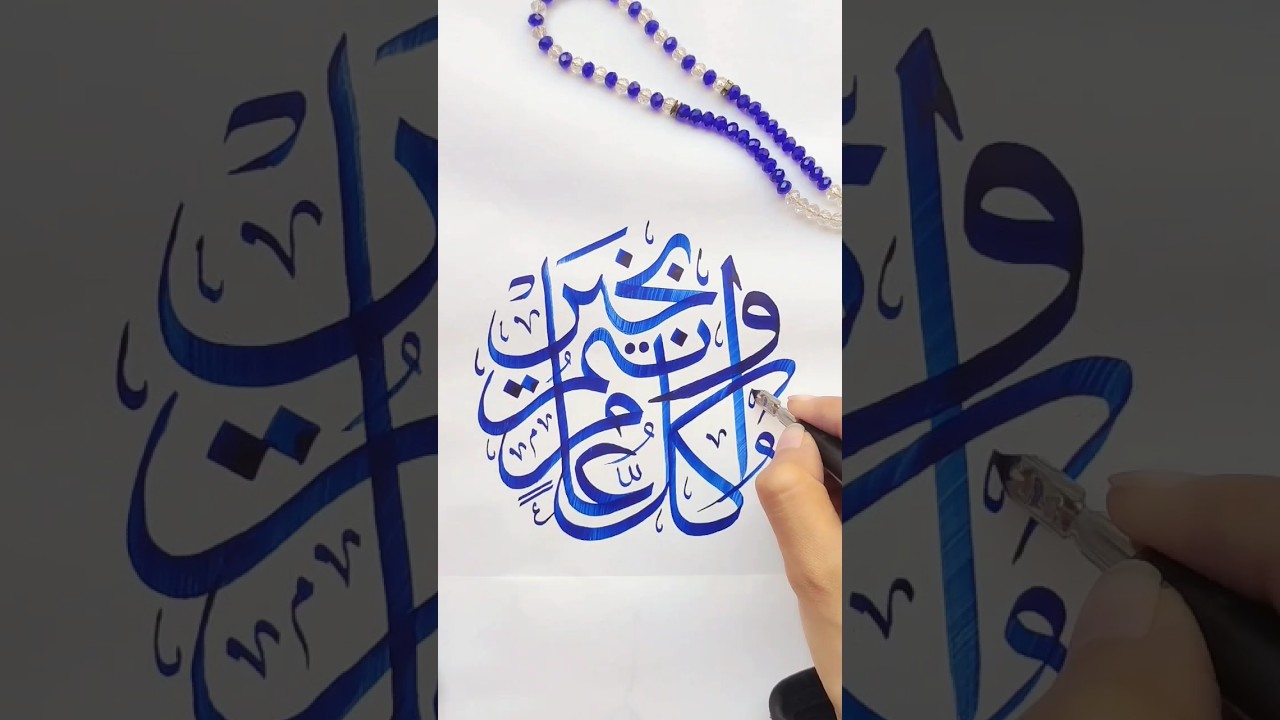 وكل عام
وانتم
بخير